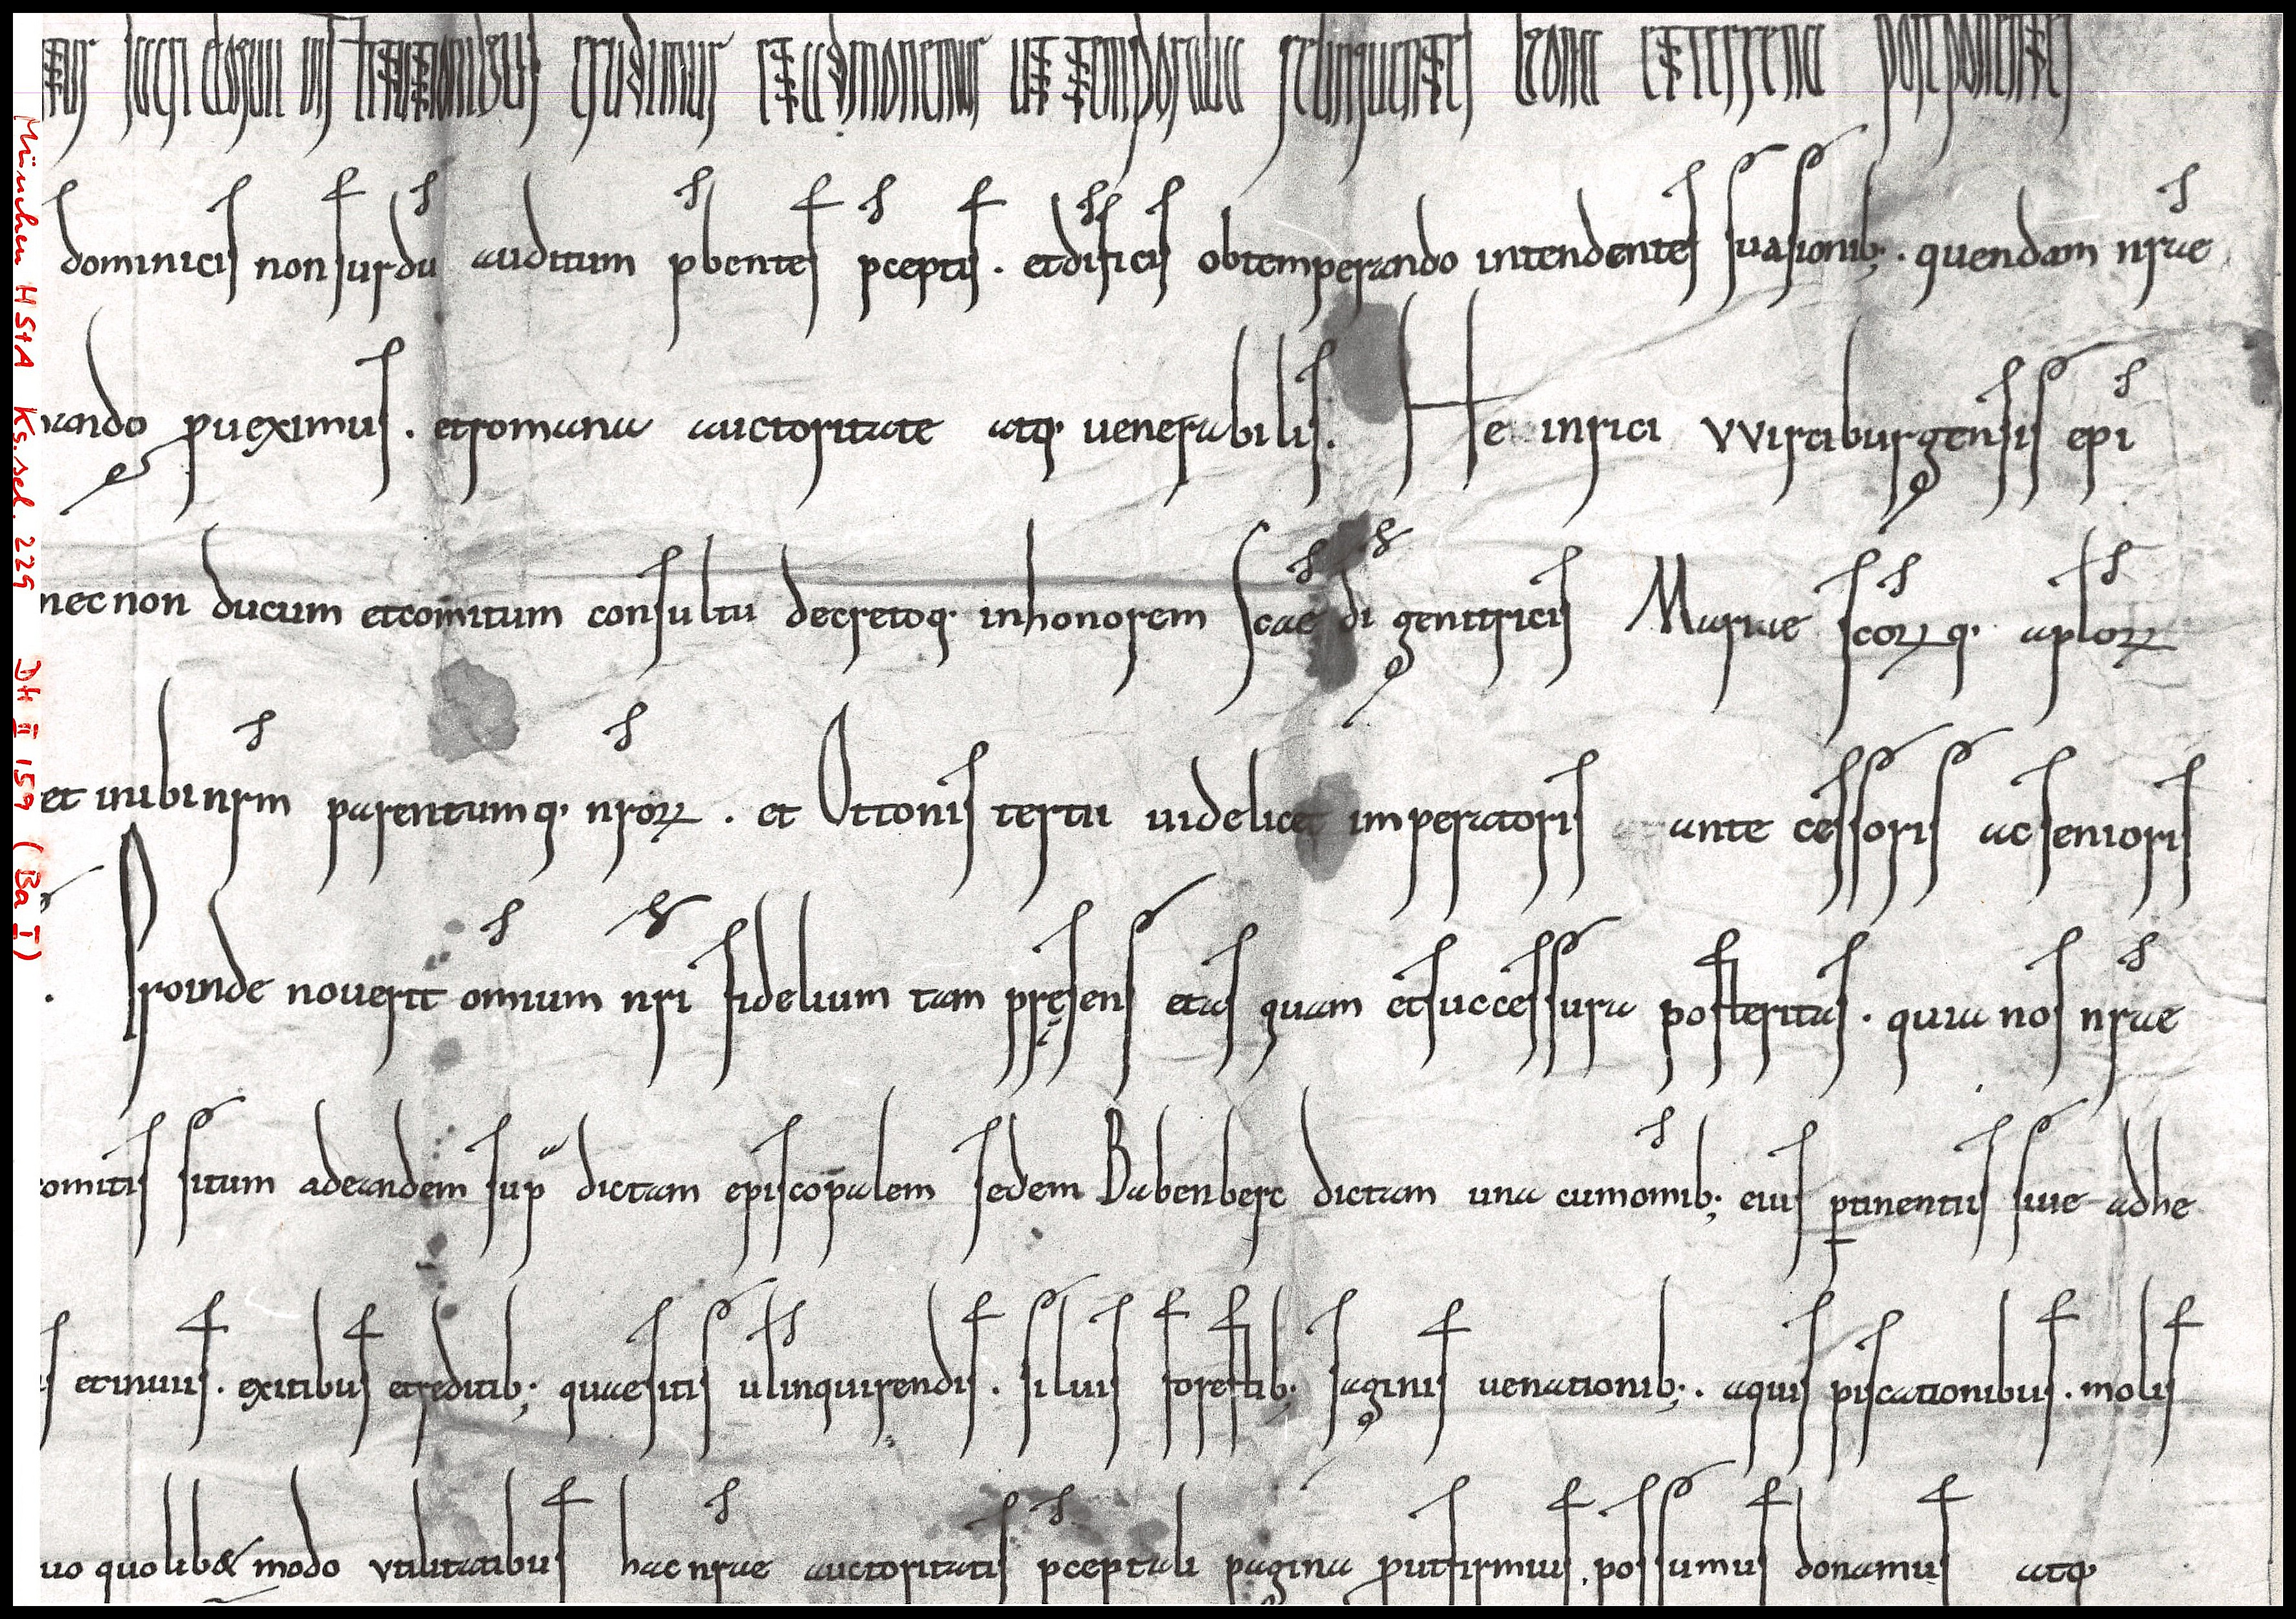 sacri eloquii instructionibus erudimur et admonemur ut temporalia relinquentes bona et terrena postponentes
dominicis non surdū auditum p̄bentes p̄ceptis . et dīficis obtemperando intendentes suasionib; . quendam nr̄ae
ando proueximus . et romana auctoritate atq; uenerabilis . Heinrici VVirciburgensis ep̄i
necnon ducum et comitum consultu decretoq; in honorem Sc̄ae dī genitricis Mariae sc̄orꝝq; apl̄orꝝ
et ubi nr̄m parentumq; nr̄orꝝ . et Ottonis tertii uidelicet imperatoris ante cessoris ac senioris
. Proinde nouerit om̄ium nr̄i fidelium tam pręsens etas quam et successura posteritas . quia nos nr̄ae
comitis situm ad eandem supᵃ dictam episcopalem sedem Babenberc dictam una cum om̄ib; eius ꝑtinentiis siue adhe
s et inuiis . exitibus et reditib; quaesitis ul̄ inquirendis . siluis forestib; saginis uenationib; . aquis piscationibus . molis
uo quolib& modo vtilitatibus hac nr̄ae auctoritatis p̄ceptali pagina prout firmius possumus donamus atq;
München HStA Ks.sel. 229 DH II 159 (Ba I)